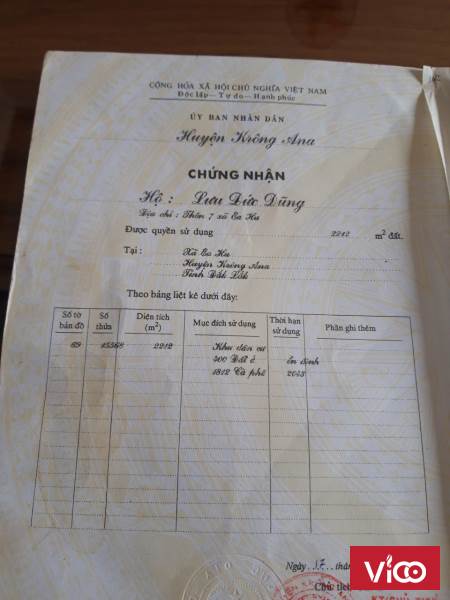 CỘNG HÒA XÃ HỘI CHỦ NGHĨA VIỆT NAM
Độc lập — Tự do — Hạnh phúc
ỦY BAN NHÂN DÂN
Huyện Krông Ana
CHỨNG NHẬN
Hộ : Lưu Đức Dũng
Địa chỉ : Thôn 7 xã Ea Hu
Được quyền sử dụng 2212 m² đất.
Tại : Xã Ea Hu
Huyện Krông Ana
Tỉnh Đắk Lắk
Theo bảng liệt kê dưới đây:
Số tờ bản đồ Số thửa Diện tích (m²) Mục đích sử dụng Thời hạn sử dụng Phần ghi thêm
69 2212 Khu dân cư
400 Đất ở ổn định
1812 Cà phê 2043
Ngày 17 thán
Chủ tịc
VICO